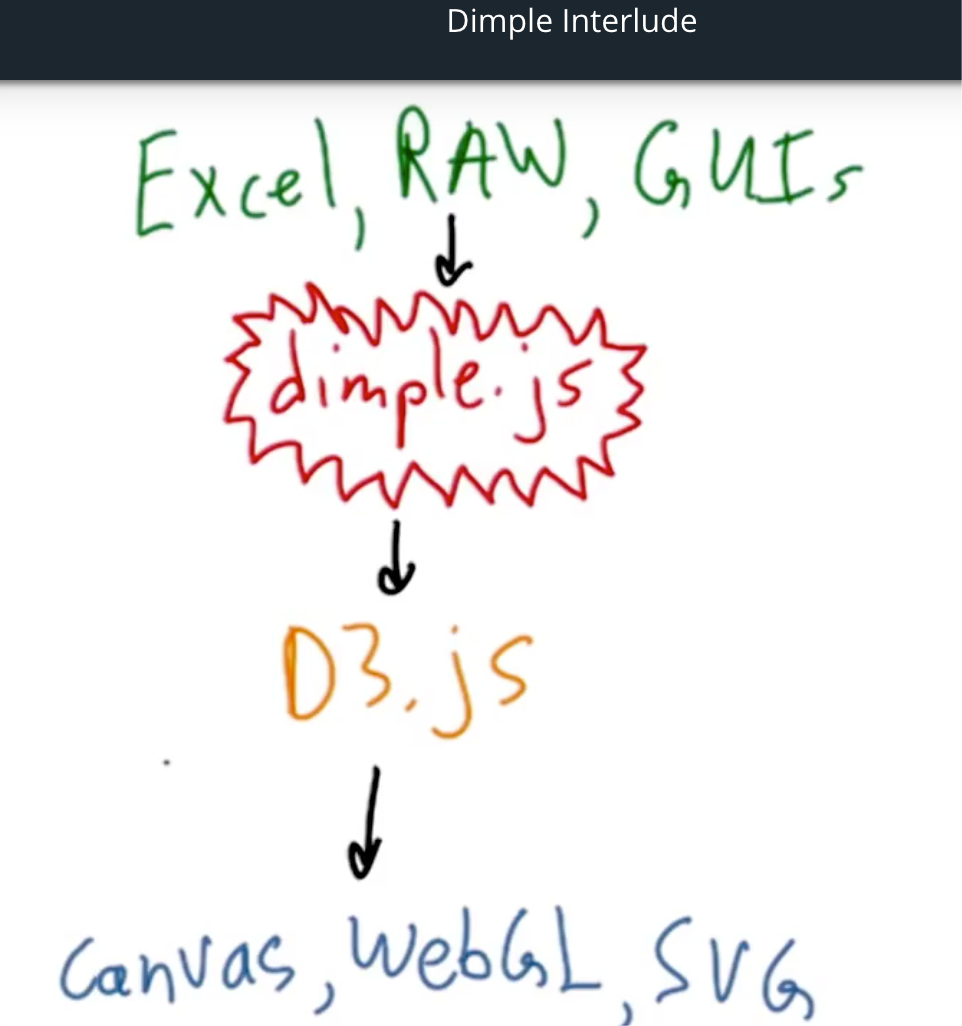 Dimple Interlude
Excel, RAW, GUIs
dimple.js
D3.js
Canvas, WebGL, SVG